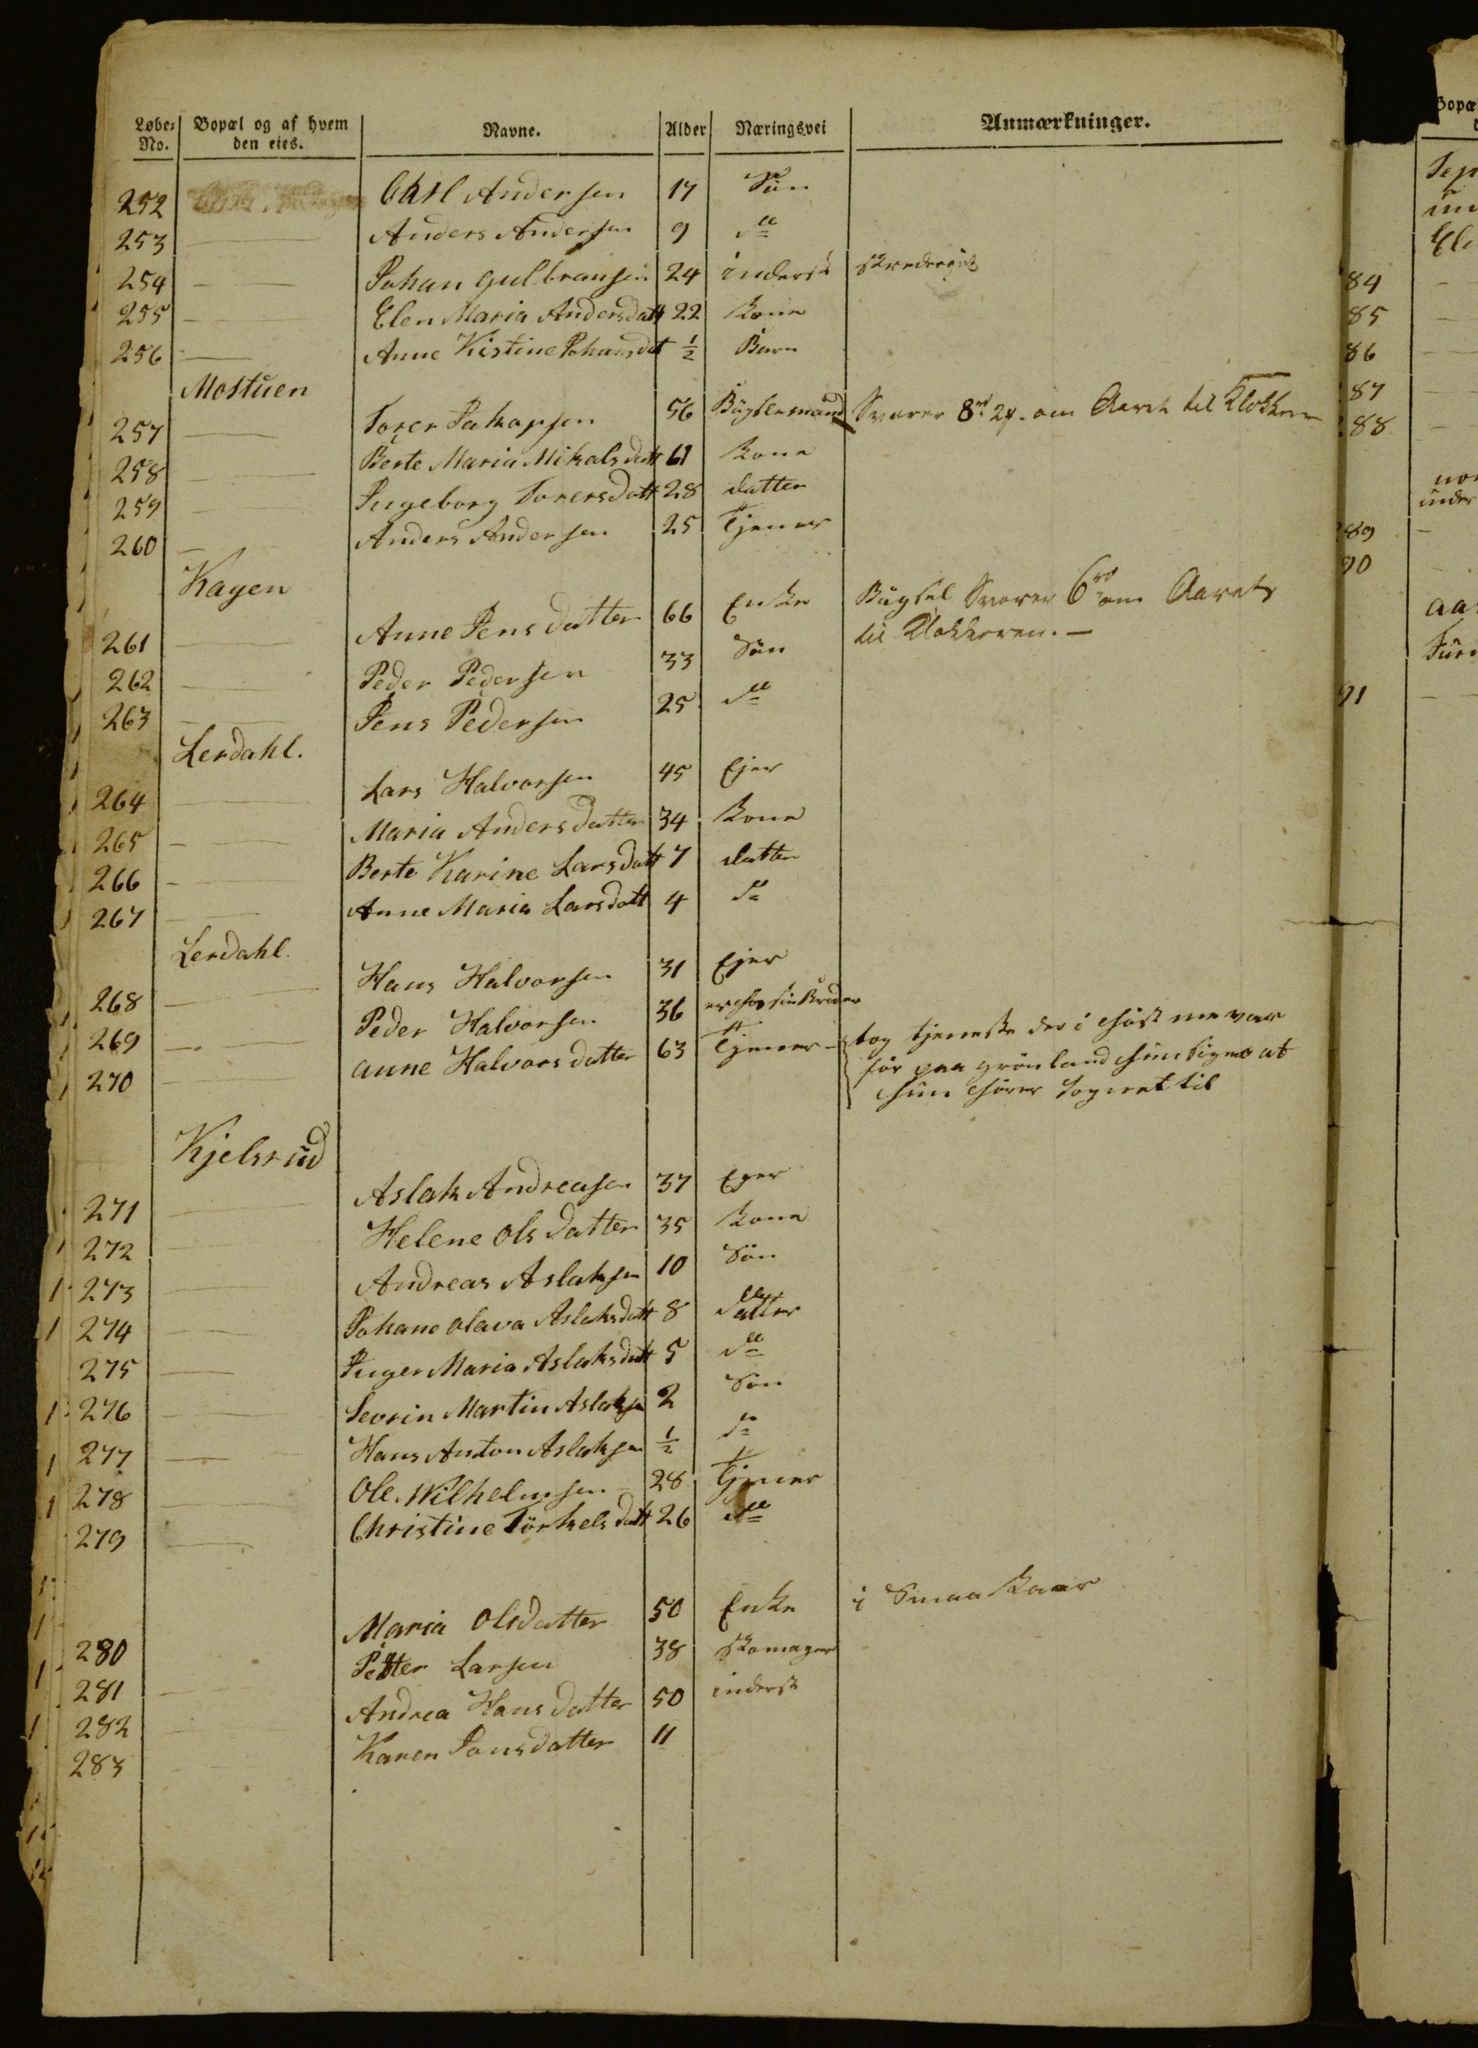 Løbe- No. Bopæl og af hvem den eies. Navne. Alder Næringsvei Anmærkninger.
252 Carl Andersen 17 Søn
253 Anders Andersen 9 do
254 Johan Gulbransen 24 inderst
255 Elen Maria Andersdatt 22 kone
256 Anne Kistine Johansdat ½ Barn
Mostuen
257 Torer Jakopsen 56 Bygselmand Svarer 8 rd 24 om Aaret til Klokkeren
258 Berte Maria Mikalsdatt 61 kone
259 Ingeborg Torersdatt 28 datter
260 Anders Andersen 25 Tjener
Kagen
261 Anne Jensdatter 66 Enke Bygsel Svarer 6 om Aaret
til Klokkeren.
262 Peder Pedersen 33 Søn
263 Jens Pedersen 25 do
Lerdahl.
264 Lars Halvorsen 45 Ejer
265 Maria Andersdatter 34 kone
266 Berte Karine Larsdatt 7 datter
267 Anne Maria Larsdatt 4 do
Lerdahl.
268 Hans Halvorsen 31 Ejer
269 Peder Halvorsen 36 er hos sin Broder
270 Anne Halvorsdatter 63 Tjener tog tjeneste der i høst me var
før paa Grønland hun siger at
hun hører Sognet til
Kjelsrud
271 Aslak Andreasen 37 Eger
272 Helene Olsdatter 35 kone
273 Andreas Aslaksen 10 Søn
274 Johane Olava Aslaksdatt 8 datter
275 Inger Maria Aslaksdatt 5 do
276 Sevrin Martin Aslaksen 2 Søn
277 Hans Anton Aslaksen ½ do
278 Ole Wilhelmsen 28 Tjener
279 Christine Törkelsdatt 26 do
280 Maria Olsdatter 50 Enke i Smaa Kaar
281 Petter Larsen 38 Skomager
282 Andrea Hansdatter 50 inderst
283 Karen Jonsdatter 11
84
85
86
87
88
89
90
91